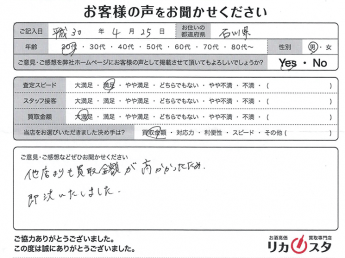 お客様の声をお聞かせください
ご記入日 平成30年4月25日 お住いの都道府県 石川県
年齢 20代・30代・40代・50代・60代・70代・80代〜 性別 男・女
ご意見・ご感想などを弊社ホームページにお客様の声として掲載させて頂いてもよろしいでしょうか? Yes・No
査定スピード 大満足・満足・やや満足・どちらでもない・やや不満・不満・( )
スタッフ接客 大満足・満足・やや満足・どちらでもない・やや不満・不満・( )
買取金額 大満足・満足・やや満足・どちらでもない・やや不満・不満・( )
当店をお選びいただきました決め手は? 買取金額・対応力・利便性・スピード・その他( )
ご意見・ご感想などぜひお聞かせください
他店よりも買取金額が高かったため、
即決いたしました。
ご協力ありがとうございました。
この度は誠にありがとうございました。
お酒高価買取専門店
リカスタ